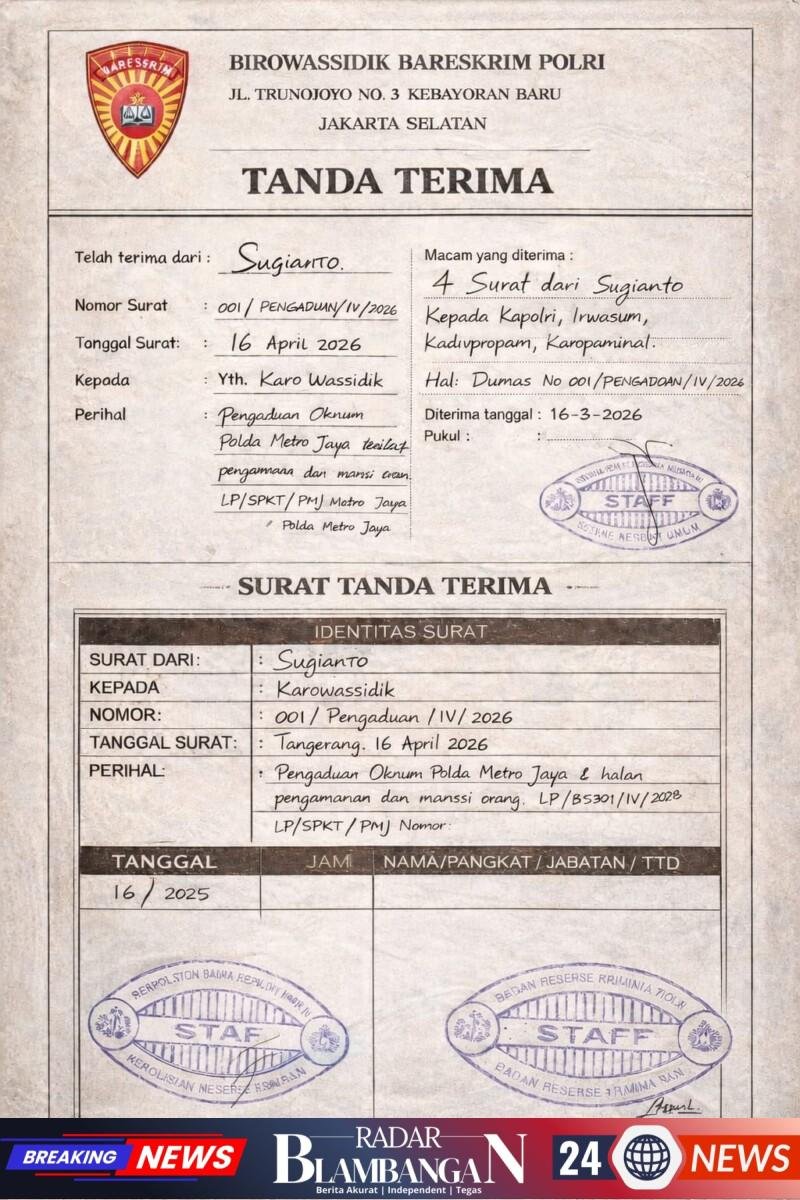 BARESKRIM
BIROWASSIDIK BARESKRIM POLRI
JL. TRUNOJOYO NO. 3 KEBAYORAN BARU
JAKARTA SELATAN
TANDA TERIMA
Telah terima dari : Sugianto.
Nomor Surat : 001 / PENGADUAN/IV/2026
Tanggal Surat: : 16 April 2026
Kepada : Yth. Karo Wassidik
Perihal : Pengaduan Oknum
Polda Metro Jaya
dan
LP/SPKT/PMJ Metro Jaya
Polda Metro Jaya
Macam yang diterima :
4 Surat dari Sugianto
Kepada Kapolri, Irwasum,
Kadivpropam, Karopaminal.
Hal: Dumas No 001/PENGADOAN/IV/2026
Diterima tanggal : 16-3-2026
Pukul : :
STAFF
SURAT TANDA TERIMA
IDENTITAS SURAT
SURAT DARI: : Sugianto
KEPADA : Karowassidik
NOMOR: : 001/ Pengaduan /IV/ 2026
TANGGAL SURAT: : Tangerang. 16 April 2026
PERIHAL: : Pengaduan Oknum Polda Metro Jaya & halan
pengamanan dan manssi orang. LP/B5301/IV/2028
LP/SPKT/PMJ Nomor:
TANGGAL JAM NAMA/PANGKAT / JABATAN / TTD
16 / 2025
STAF
BADAN RESERSE
STAFF
BREAKING NEWS
RADAR
BLAMBANGAN
Berita Akurat | Independent | Tegas
24 NEWS